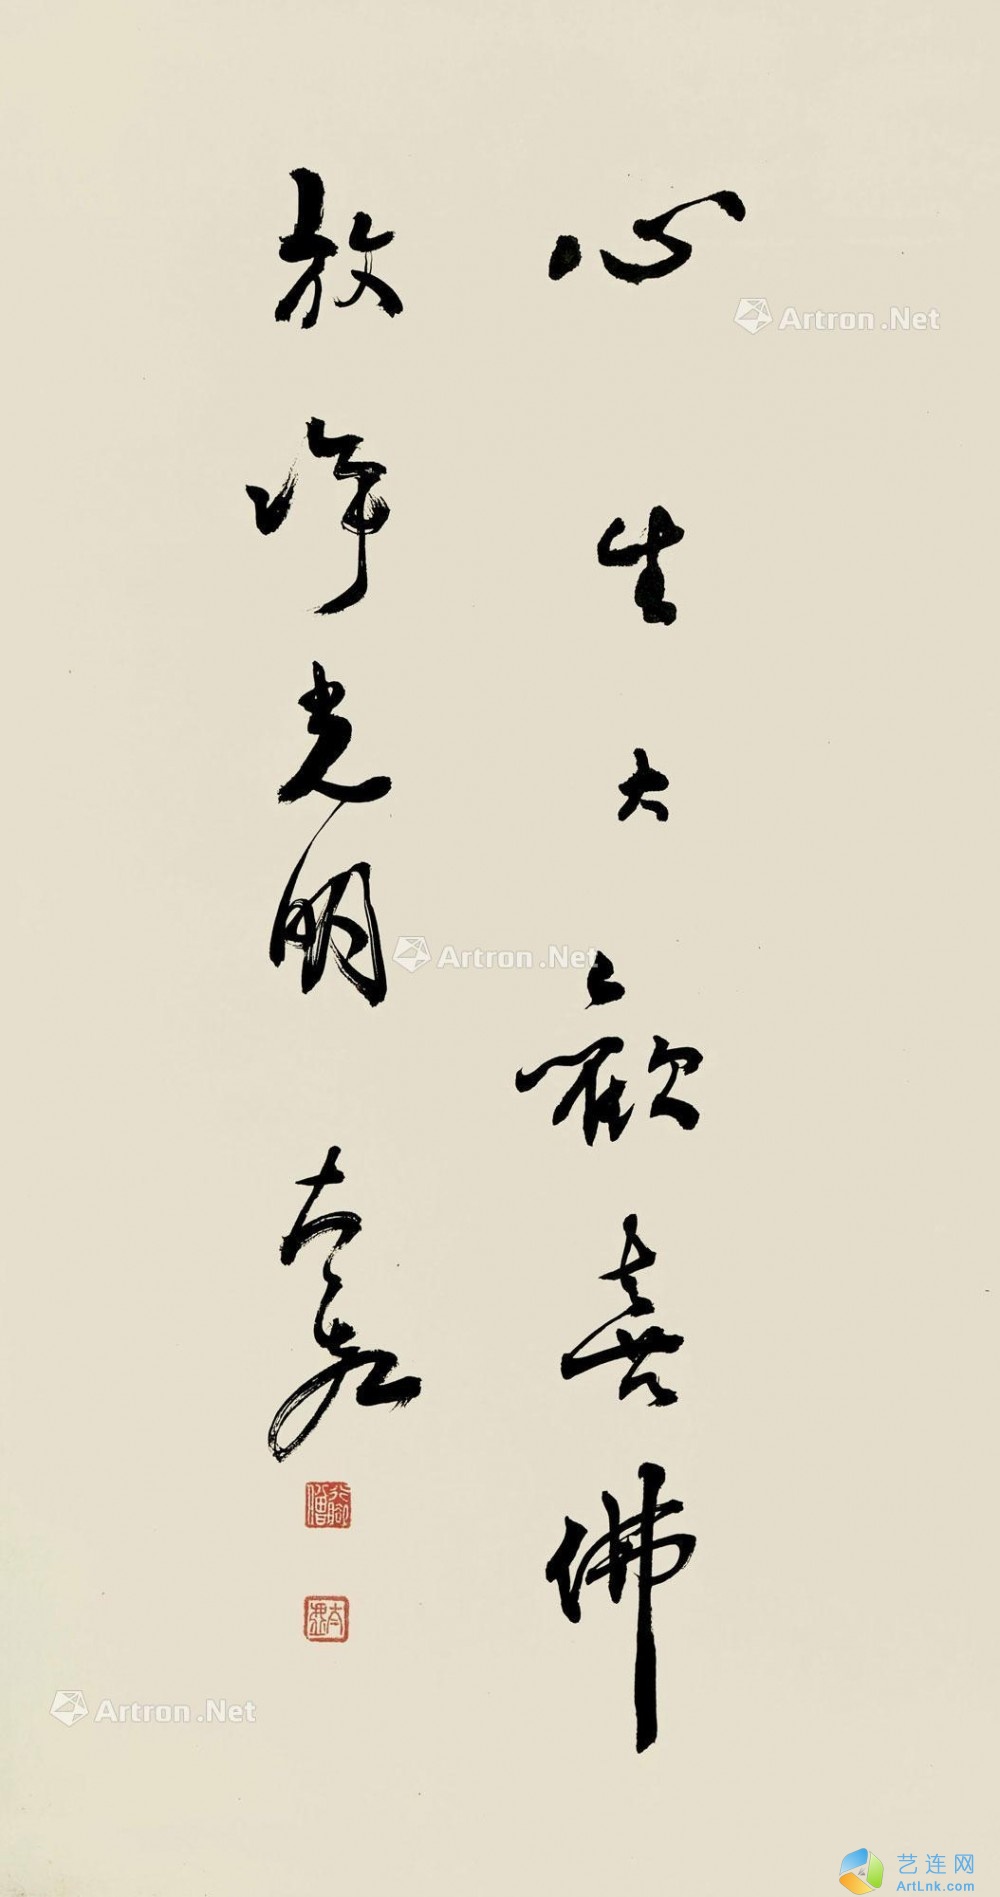 心生大歡喜佛
放净光明 本煥
行腳僧
本煥
Artron.Net
Artron.Net
Artron.Net
艺连网
ArtLnk.com